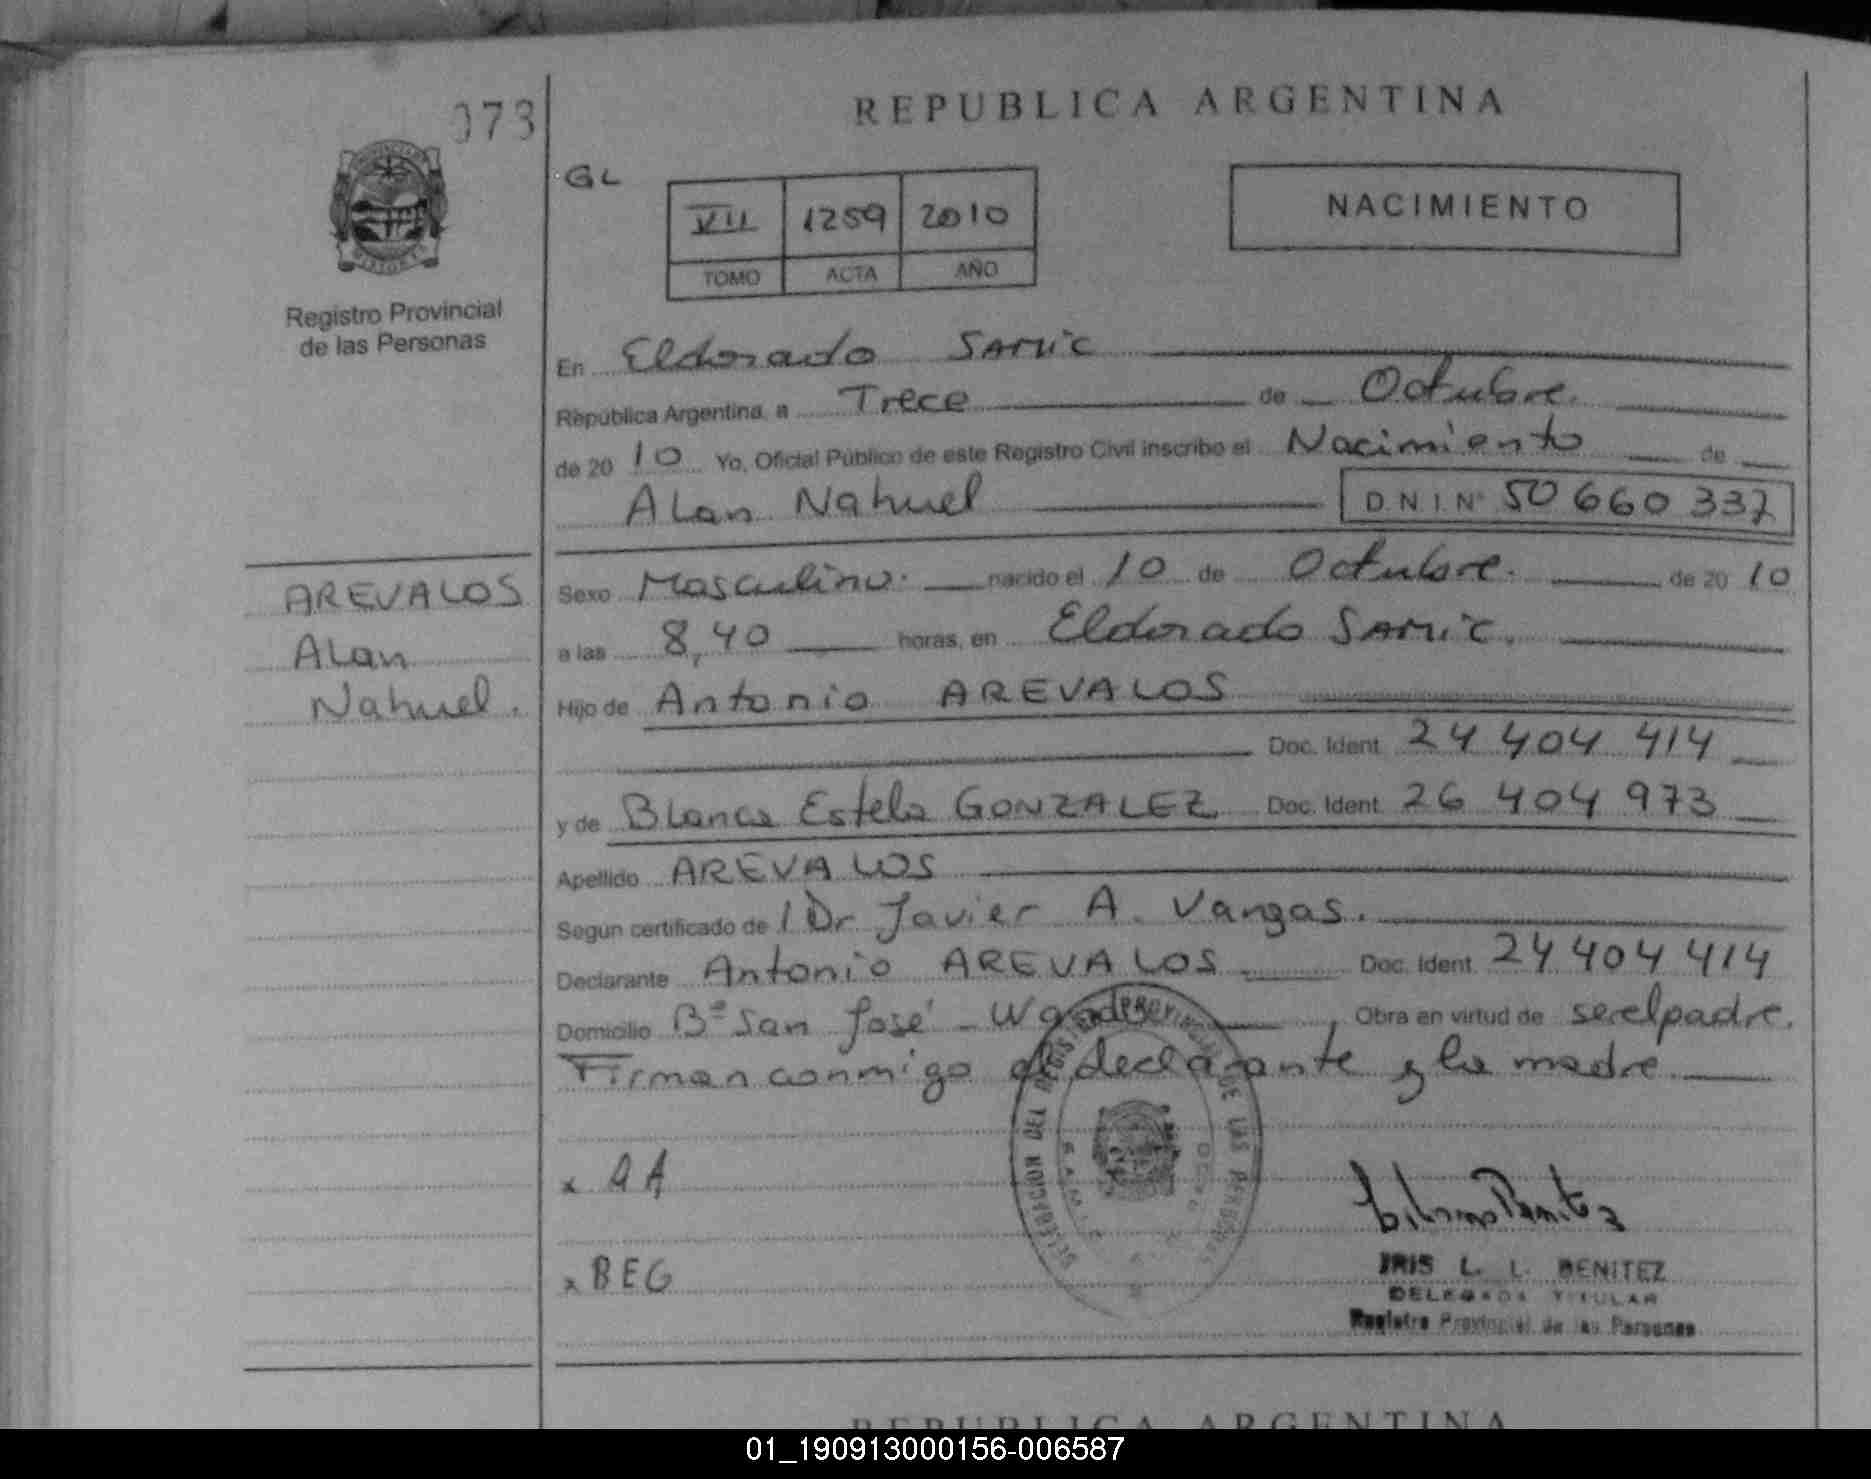 073
REPUBLICA ARGENTINA
GL
VII 1259 2010
TOMO ACTA AÑO
NACIMIENTO
Registro Provincial
de las Personas
En Eldorado SAMIC
República Argentina, a Trece de Octubre.
de 20 10 Yo, Oficial Público de este Registro Civil inscribo el Nacimiento de
Alan Nahuel D.N.I.Nº 50 660 337
AREVALOS
Alan
Nahuel.
Sexo Masculino. nacido el 10 de Octubre. de 20 10
a las 8,40 horas, en Eldorado SAMIC.
Hijo de Antonio AREVALOS
Doc. Ident. 24 404 414
y de Blanca Estela GONZALEZ Doc. Ident. 26 404 973
Apellido AREVALOS
Según certificado de l Dr Javier A. Vargas.
Declarante Antonio AREVALOS Doc. Ident. 24 404 414
Domicilio Bº San José - Wanda, Obra en virtud de ser el padre.
Firman conmigo el declarante y la madre
DELEGACION DEL REGISTRO PROVINCIAL DE LAS PERSONAS
x AA
x BEG
IRIS L. L. BENITEZ
DELEGADA TITULAR
Registro Provincial de las Personas
REPUBLICA ARGENTINA
01_190913000156-006587